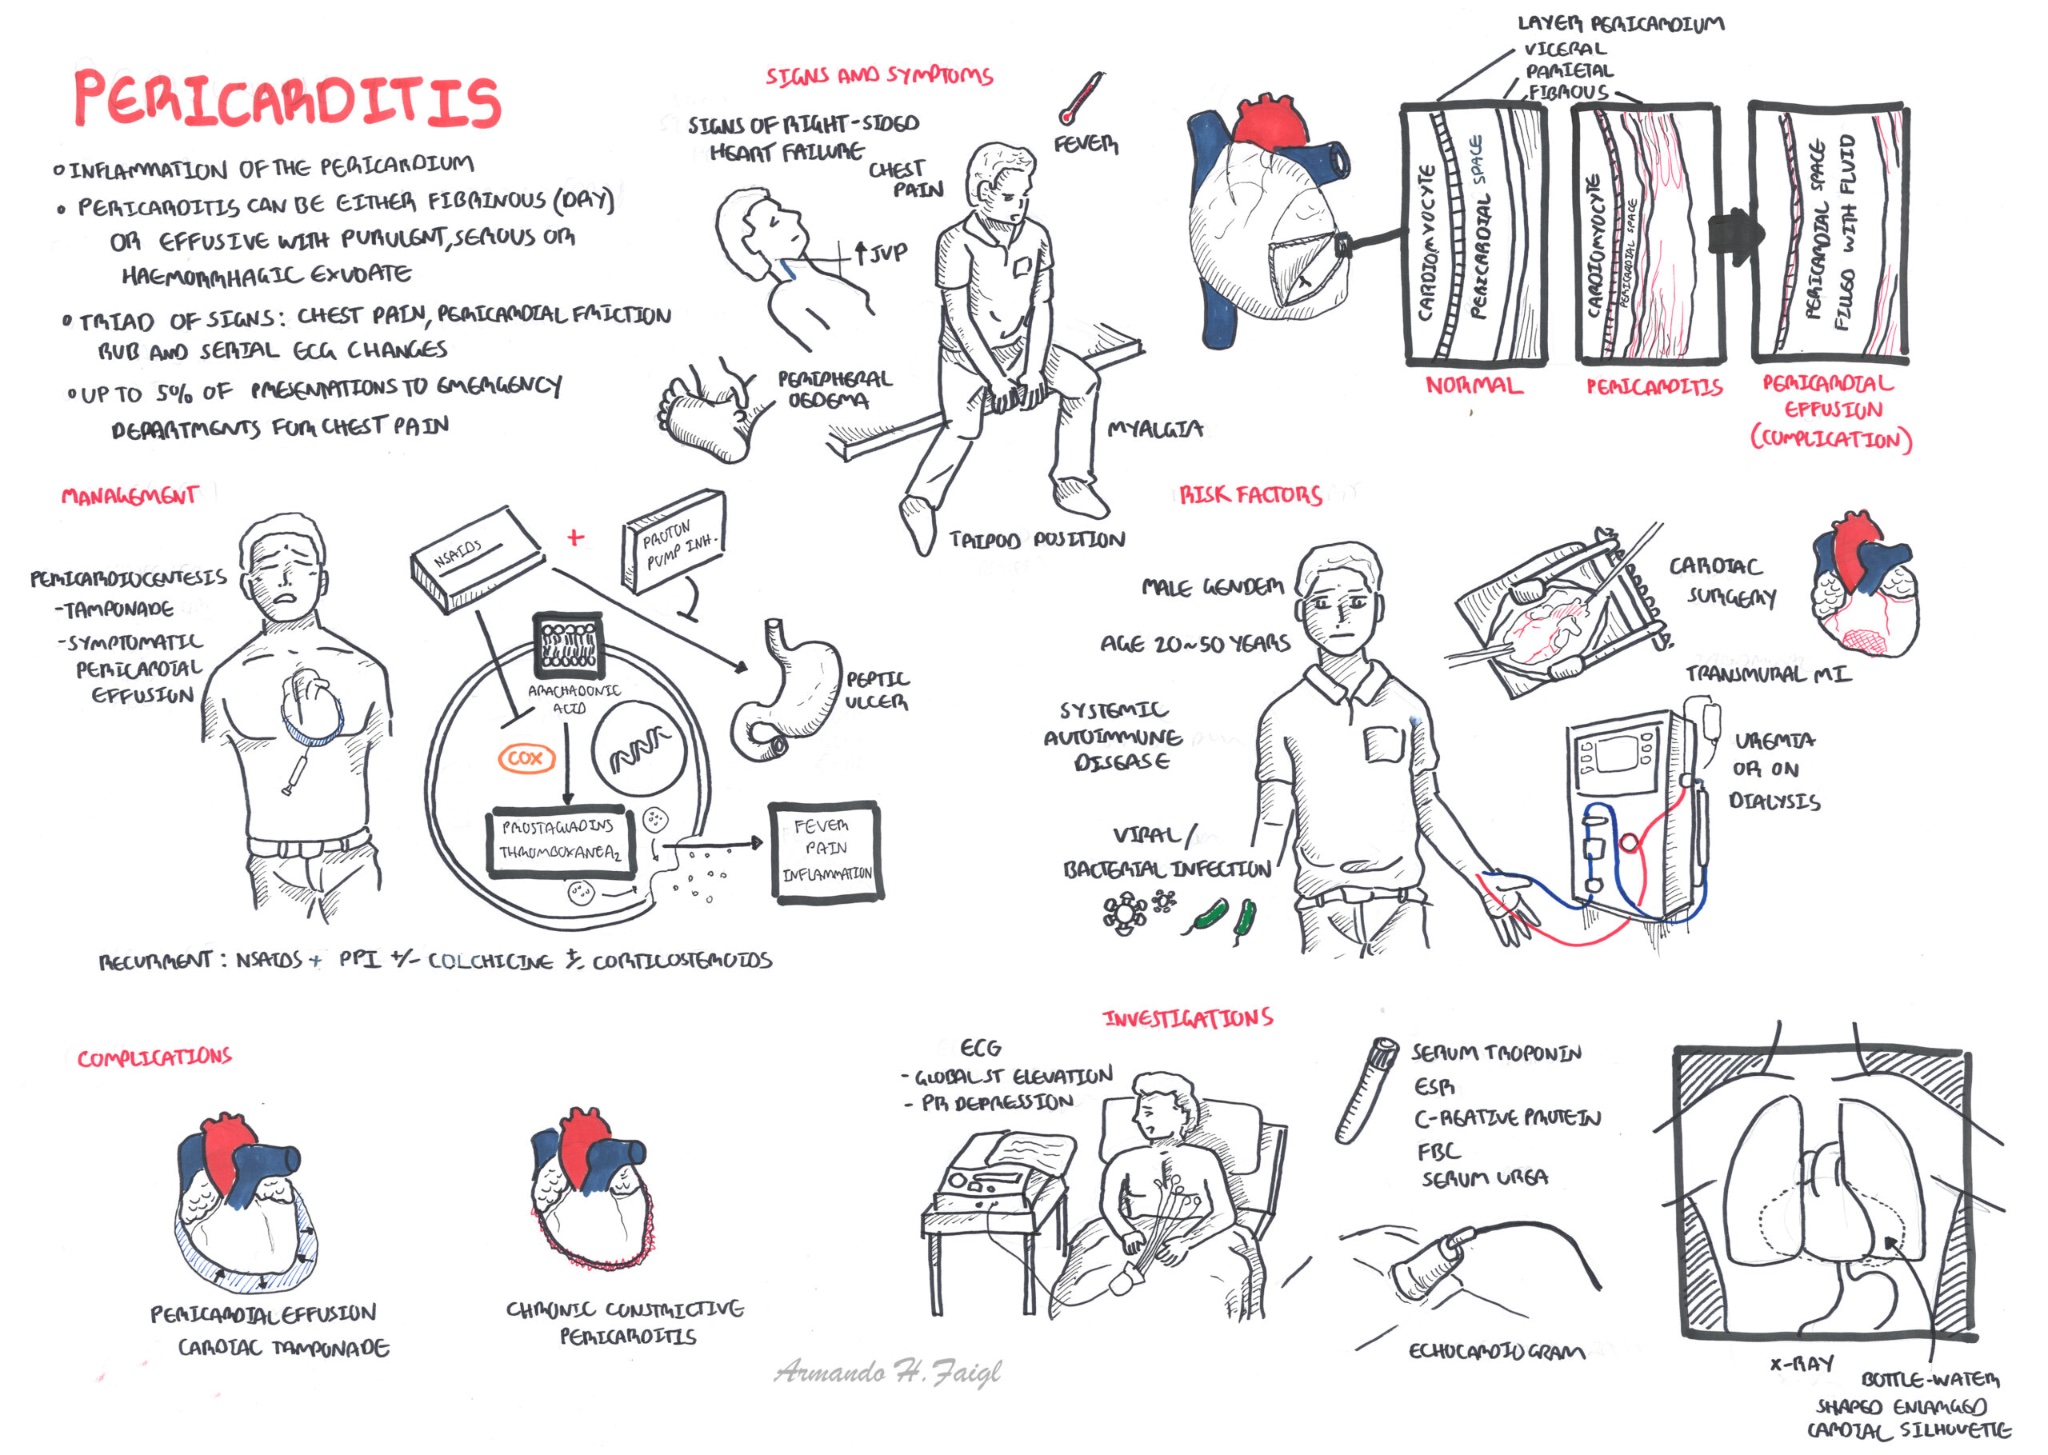 PERICARDITIS
INFLAMMATION OF THE PERICARDIUM
PERICARDITIS CAN BE EITHER FIBRINOUS (DRY)
OR EFFUSIVE WITH PURULENT, SEROUS OR
HAEMORRHAGIC EXUDATE
TRIAD OF SIGNS: CHEST PAIN, PERICARDIAL FRICTION
RUB AND SERIAL ECG CHANGES
UP TO 5% OF PRESENTATIONS TO EMERGENCY
DEPARTMENTS FOR CHEST PAIN
SIGNS AND SYMPTOMS
SIGNS OF RIGHT-SIDED
HEART FAILURE
CHEST
PAIN
FEVER
↑ JVP
PERIPHERAL
OEDEMA
MYALGIA
TRIPOD POSITION
LAYER PERICARDIUM
VICERAL
PARIETAL
FIBROUS
CARDIOMYOCYTE
PERICARDIAL SPACE
CARDIOMYOCYTE
PERICARDIAL SPACE
PERICARDIAL SPACE
FILLED WITH FLUID
NORMAL
PERICARDITIS
PERICARDIAL
EFFUSION
(COMPLICATION)
MANAGEMENT
PERICARDIOCENTESIS
-TAMPONADE
-SYMPTOMATIC
PERICARDIAL
EFFUSION
NSAIDS
+
PROTON
PUMP INH.
ARACHADONIC
ACID
COX
PROSTAGLADINS
THROMBOXANEA2
PEPTIC
ULCER
FEVER
PAIN
INFLAMMATION
RECURRENT: NSAIDS + PPI +/- COLCHICINE ± CORTICOSTEROIDS
RISK FACTORS
MALE GENDER
AGE 20~50 YEARS
SYSTEMIC
AUTOIMMUNE
DISEASE
VIRAL/
BACTERIAL INFECTION
CARDIAC
SURGERY
TRANSMURAL MI
UREMIA
OR ON
DIALYSIS
COMPLICATIONS
PERICARDIAL EFFUSION
CARDIAC TAMPONADE
CHRONIC CONSTRICTIVE
PERICARDITIS
INVESTIGATIONS
ECG
- GLOBAL ST ELEVATION
- PR DEPRESSION
SERUM TROPONIN
ESR
C-REATIVE PROTEIN
FBC
SERUM UREA
ECHOCARDIOGRAM
X-RAY
BOTTLE-WATER
SHAPED ENLARGED
CARDIAL SILHOVETTE
Armando H. Faigl